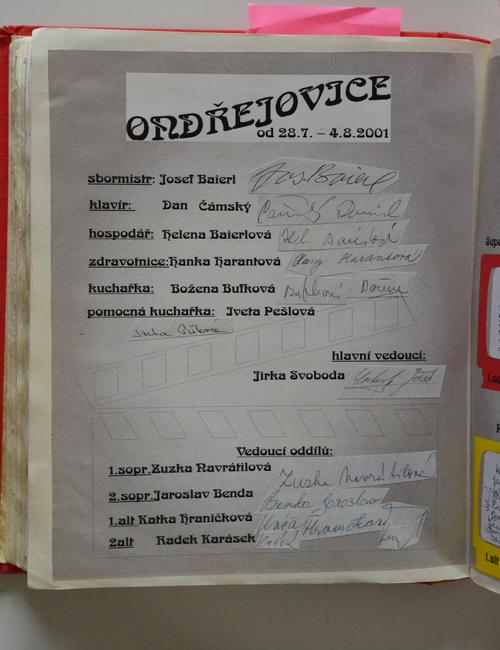 ONDŘEJOVICE
od 28.7. – 4.8.2001
sbormistr: Josef Baierl
klavír: Dan Čámský
hospodář: Helena Baierlová
zdravotnice: Hanka Harantová
kuchařka: Božena Bufková
pomocná kuchařka: Iveta Pešlová
hlavní vedoucí:
Jirka Svoboda
Vedoucí oddílů:
1.sopr. Zuzka Navrátilová Zuzka Navrátilová
2.sopr. Jaroslav Benda Benda Jaroslav
1.alt Katka Hraničková
2alt Radek Karásek
1.alt